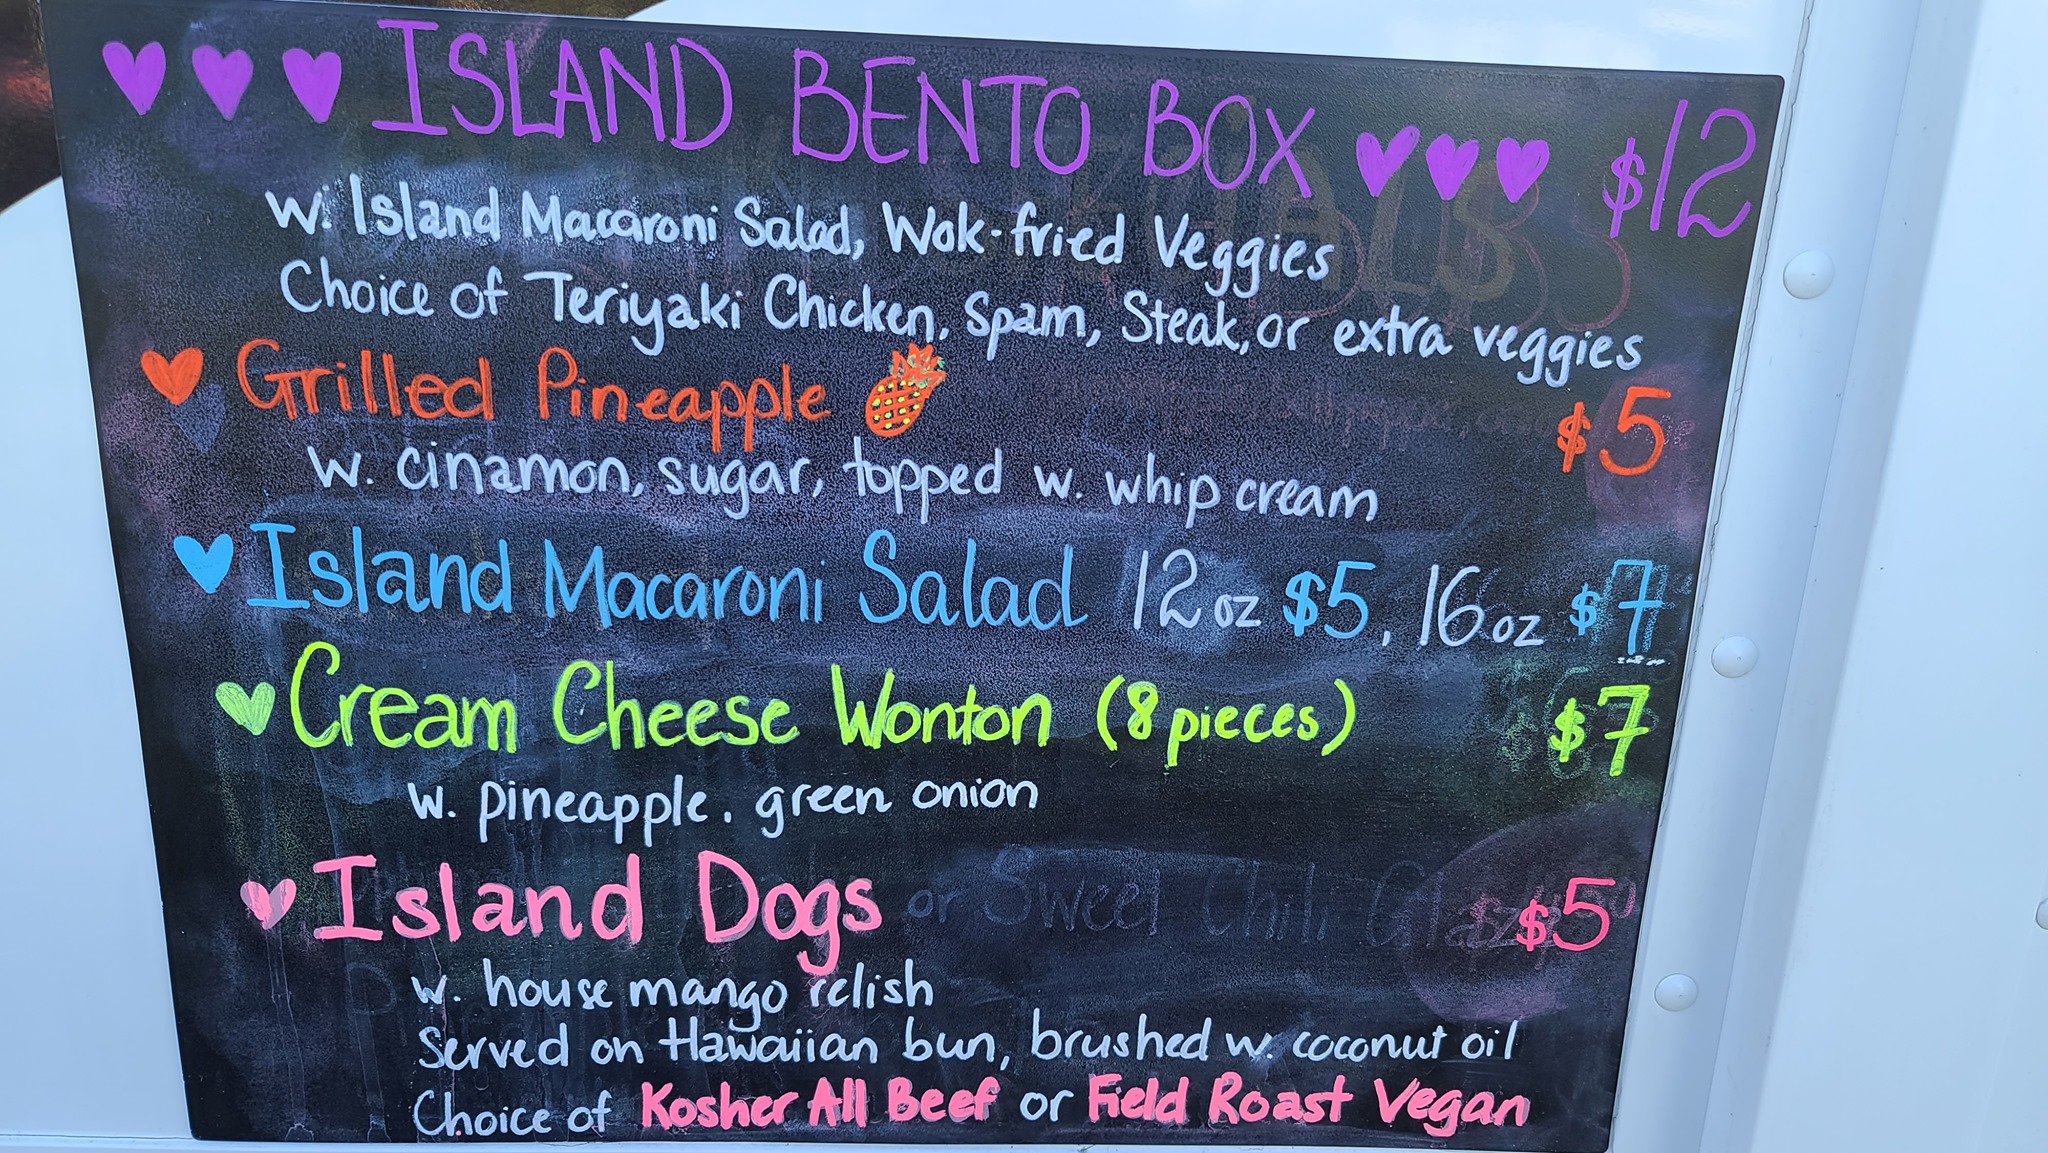 ISLAND BENTO BOX $12
w. Island Macaroni Salad, Wok-fried Veggies
Choice of Teriyaki Chicken, Spam, Steak, or extra veggies
Grilled Pineapple $5
w. cinamon, sugar, topped w. whip cream
Island Macaroni Salad 12oz $5, 16oz $7
Cream Cheese Wonton (8 pieces) $7
w. pineapple, green onion
Island Dogs or Sweet Chili Glaze $5
w. house mango relish
Served on Hawaiian bun, brushed w. coconut oil
Choice of Kosher All Beef or Field Roast Vegan